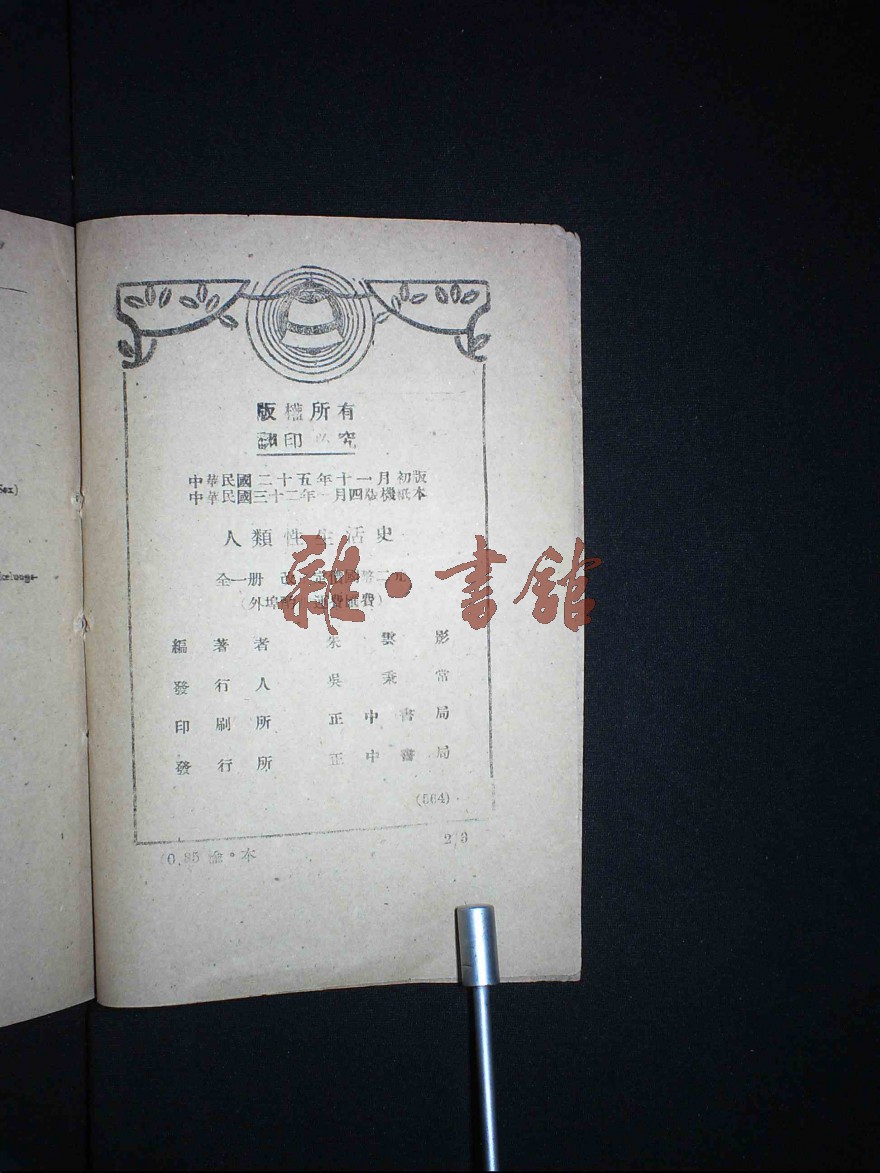 Sex)
版權所有
翻印必究
中華民國二十五年十一月初版
中華民國三十二年一月四版機紙本
人類性生活史
全一册 改 定價國幣二
(外埠 運費匯費)
編著者 朱雲影
發行人 吳秉常
印刷所 正中書局
發行所 正中書局
(564)
2/3
0.85 渝·本
雜·書館